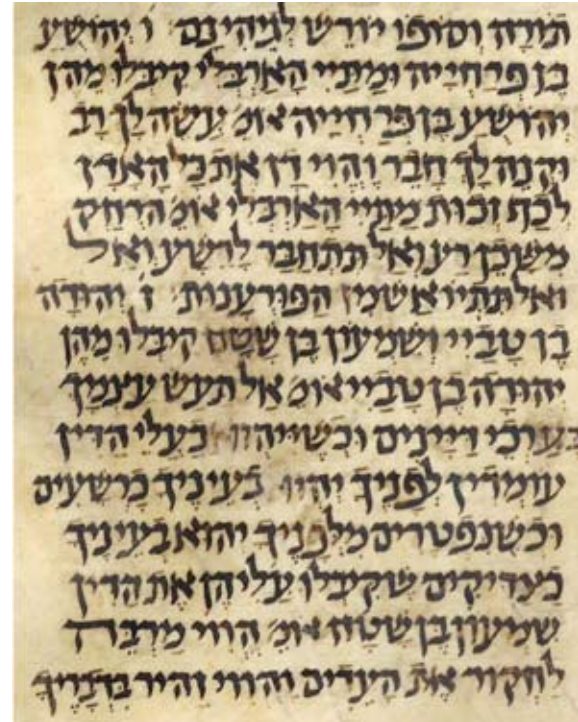 תורה וסופו יורש לגיהינם ו יהושע
בן פרחייה ומתיי הארבלי קיבלו מהן
יהושע בן פרחייה אומ' עשה לך רב
וקנה לך חבר והוי דן את כל האדן
לכף זכות מתיי הארבלי אומ' הרחק
משכן רע ואל תתחבר לרשע ואל
ואל תתייאש מן הפורענות ז יהודה
בן טביי ושמעון בן שטח קיבלו מהן
יהודה בן טביי אומ' אל תעש עצמך
בערכי דיינים וכשיהיו בעלי הדין
עומדין לפניך יהיו בעיניך כרשעים
וכשנפטרים מלפניך יהוא בעיניך
כצדיקים שקיבלו עליהן את הדין
שמעון בן שטח אומ' הווי מרבה
לחקור את העדים והווי זהיר בדבריך